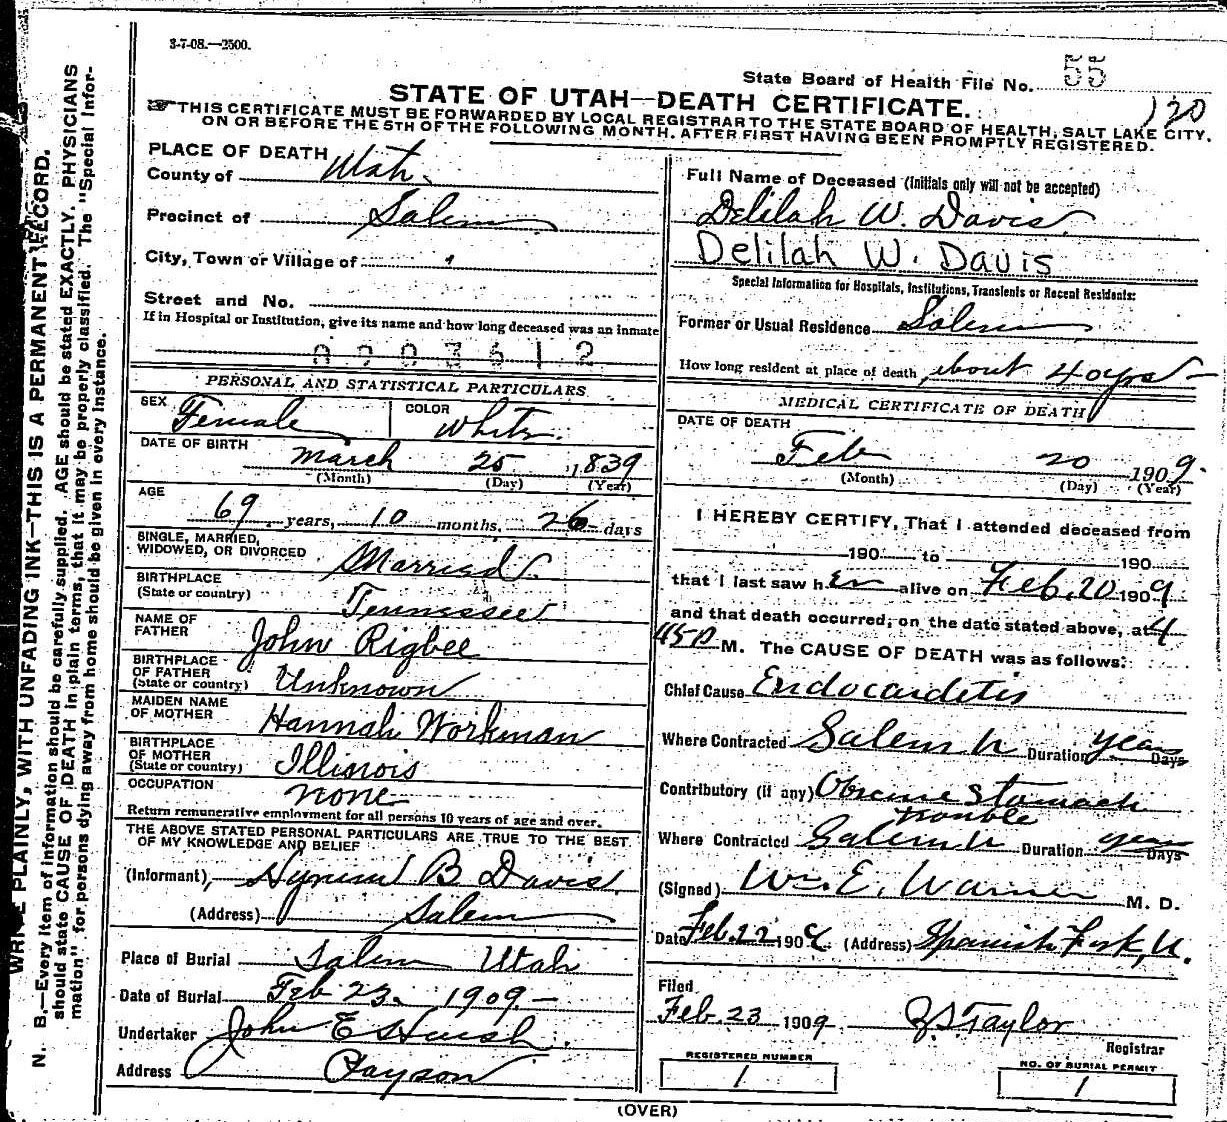 3-7-08.—2500.
State Board of Health File No. 55
120
STATE OF UTAH—DEATH CERTIFICATE.
THIS CERTIFICATE MUST BE FORWARDED BY LOCAL REGISTRAR TO THE STATE BOARD OF HEALTH, SALT LAKE CITY,
ON OR BEFORE THE 5TH OF THE FOLLOWING MONTH. AFTER FIRST HAVING BEEN PROMPTLY REGISTERED.
PLACE OF DEATH
County of Utah.
Precinct of Salem
City, Town or Village of "
Street and No.
If in Hospital or Institution, give its name and how long deceased was an inmate
0203612
PERSONAL AND STATISTICAL PARTICULARS
SEX Female COLOR White.
DATE OF BIRTH March 25 1839
(Month) (Day) (Year)
AGE
69 years, 10 months, 26 days
SINGLE, MARRIED,
WIDOWED, OR DIVORCED Married.
BIRTHPLACE
(State or country) Tennessee
NAME OF
FATHER John Rigbee
BIRTHPLACE
OF FATHER
(State or country) Unknown
MAIDEN NAME
OF MOTHER Hannah Workman
BIRTHPLACE
OF MOTHER
(State or country) Illinois
OCCUPATION none
Return remunerative employment for all persons 10 years of age and over.
THE ABOVE STATED PERSONAL PARTICULARS ARE TRUE TO THE BEST
OF MY KNOWLEDGE AND BELIEF
(Informant), Hyrum B Davis.
(Address) Salem
Place of Burial Salem Utah
Date of Burial Feb 23. 1909-
Undertaker John E Huish.
Address Payson
Full Name of Deceased (Initials only will not be accepted)
Delilah W. Davis
Delilah W. Davis
Special Information for Hospitals, Institutions, Transients or Recent Residents:
Former or Usual Residence Salem
How long resident at place of death about 40 yrs-
MEDICAL CERTIFICATE OF DEATH
DATE OF DEATH
Feb 20 1909.
(Month) (Day) (Year)
I HEREBY CERTIFY, That I attended deceased from
190 to 190
that I last saw h er alive on Feb. 20 1909
and that death occurred, on the date stated above, at 4
45 P M. The CAUSE OF DEATH was as follows:
Chief Cause Endocardetis
Where Contracted Salem U Duration years Days
Contributory (if any) Obscure Stomach
trouble
Where Contracted Salem U Duration years Days
(Signed) Wm. E. Warner M. D.
Date Feb. 22 1909. (Address) Spanish Fork, U.
Filed
Feb. 23 1909 Z S Taylor
Registrar
REGISTERED NUMBER
1
NO. OF BURIAL PERMIT
1
(OVER)
WRITE PLAINLY, WITH UNFADING INK—THIS IS A PERMANENT RECORD.
N. B.—Every item of information should be carefully supplied. AGE should be stated EXACTLY. PHYSICIANS
should state CAUSE OF DEATH in plain terms, that it may be properly classified. The "Special Infor-
mation" for persons dying away from home should be given in every instance.